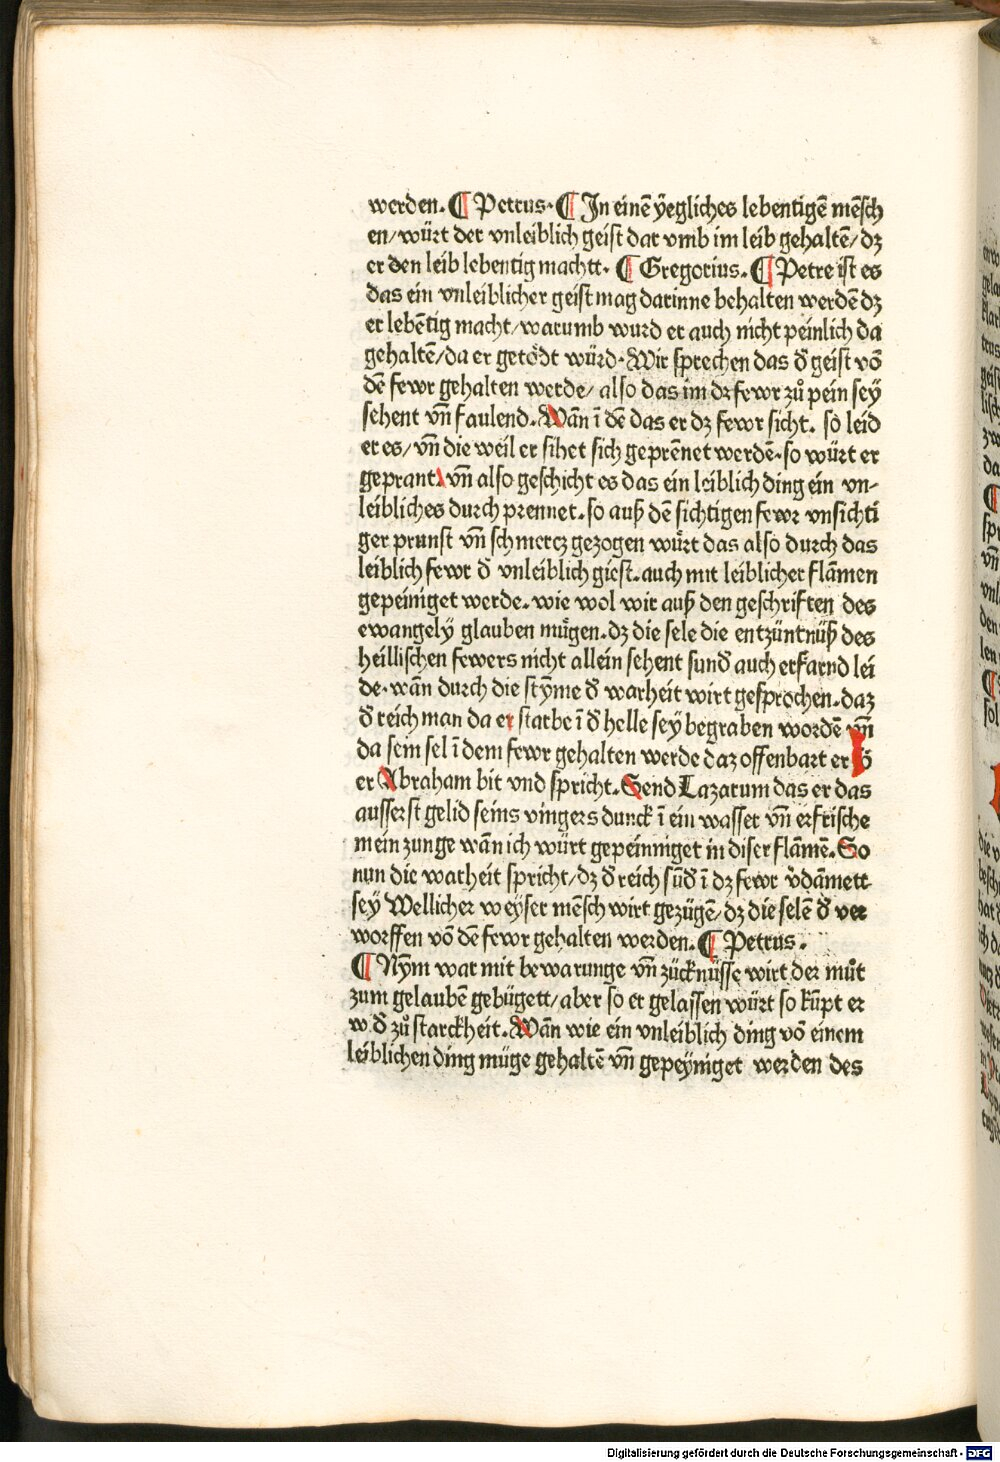 werden. ¶ Petrus. ¶ In einē yegliches lebentigē mēsch
en/würt der vnleiblich geist dar vmb im leib gehaltē/dz
er den leib lebentig machtt. ¶ Gregorius. ¶ Petre ist es
das ein vnleiblicher geist mag darinne behalten werdē dz
er lebētig macht/warumb wurd er auch nicht peinlich da
gehaltē/da er getödt würd. Wir sprechen das đ geist vō
dē fewr gehalten werde/ also das im dz fewr zů pein sey
sehent vn̄ faulend. Wān ī dē das er dz fewr sicht. so leid
er es/ vn̄ die weil er sihet sich geprēnet werdē. so würt er
geprant. vn̄ also geschicht es das ein leiblich ding ein vn-
leibliches durch prennet. so auß dē sichtigen fewr vnsichti
ger prunst vn̄ schmercz gezogen würt das also durch das
leiblich fewr đ vnleiblich giest. auch mit leiblicher flāmen
gepeiniget werde. wie wol wir auß den geschriften des
ewangely glauben mügen. dz die sele die entzüntnüß des
heillischen fewers nicht allein sehent sunđ auch erfarnd lei
de. wān durch die stȳme đ warheit wirt gesprochen. daz
đ reich man da er starbe ī đ helle sey begraben wordē vn̄
da sein sel ī dem fewr gehalten werde daz offenbart er
er Abraham bit vnd spricht. Send Lazarum das er das
ausserst gelid seins vingers dunck ī ein wasser vn̄ erfrische
mein zunge wān ich würt gepeinniget in diser flāme. So
nun die warheit spricht/dz đ reich sūđ ī dz fewr v̄dāmett
sey Wellicher weyser mēsch wirt gezügen/dz die selē đ ver
worffen vō dē fewr gehalten werden. ¶ Petrus.
¶ Nȳm war mit bewarunge vn̄ zücknüsse wirt der můt
zum gelaubē gebügett/aber so er gelassen würt so kūpt er
w đ zů starckheit. Wān wie ein vnleiblich ding vō einem
leiblichen ding müge gehaltē vn̄ gepeyniget werden des
Digitalisierung gefördert durch die Deutsche Forschungsgemeinschaft - DFG